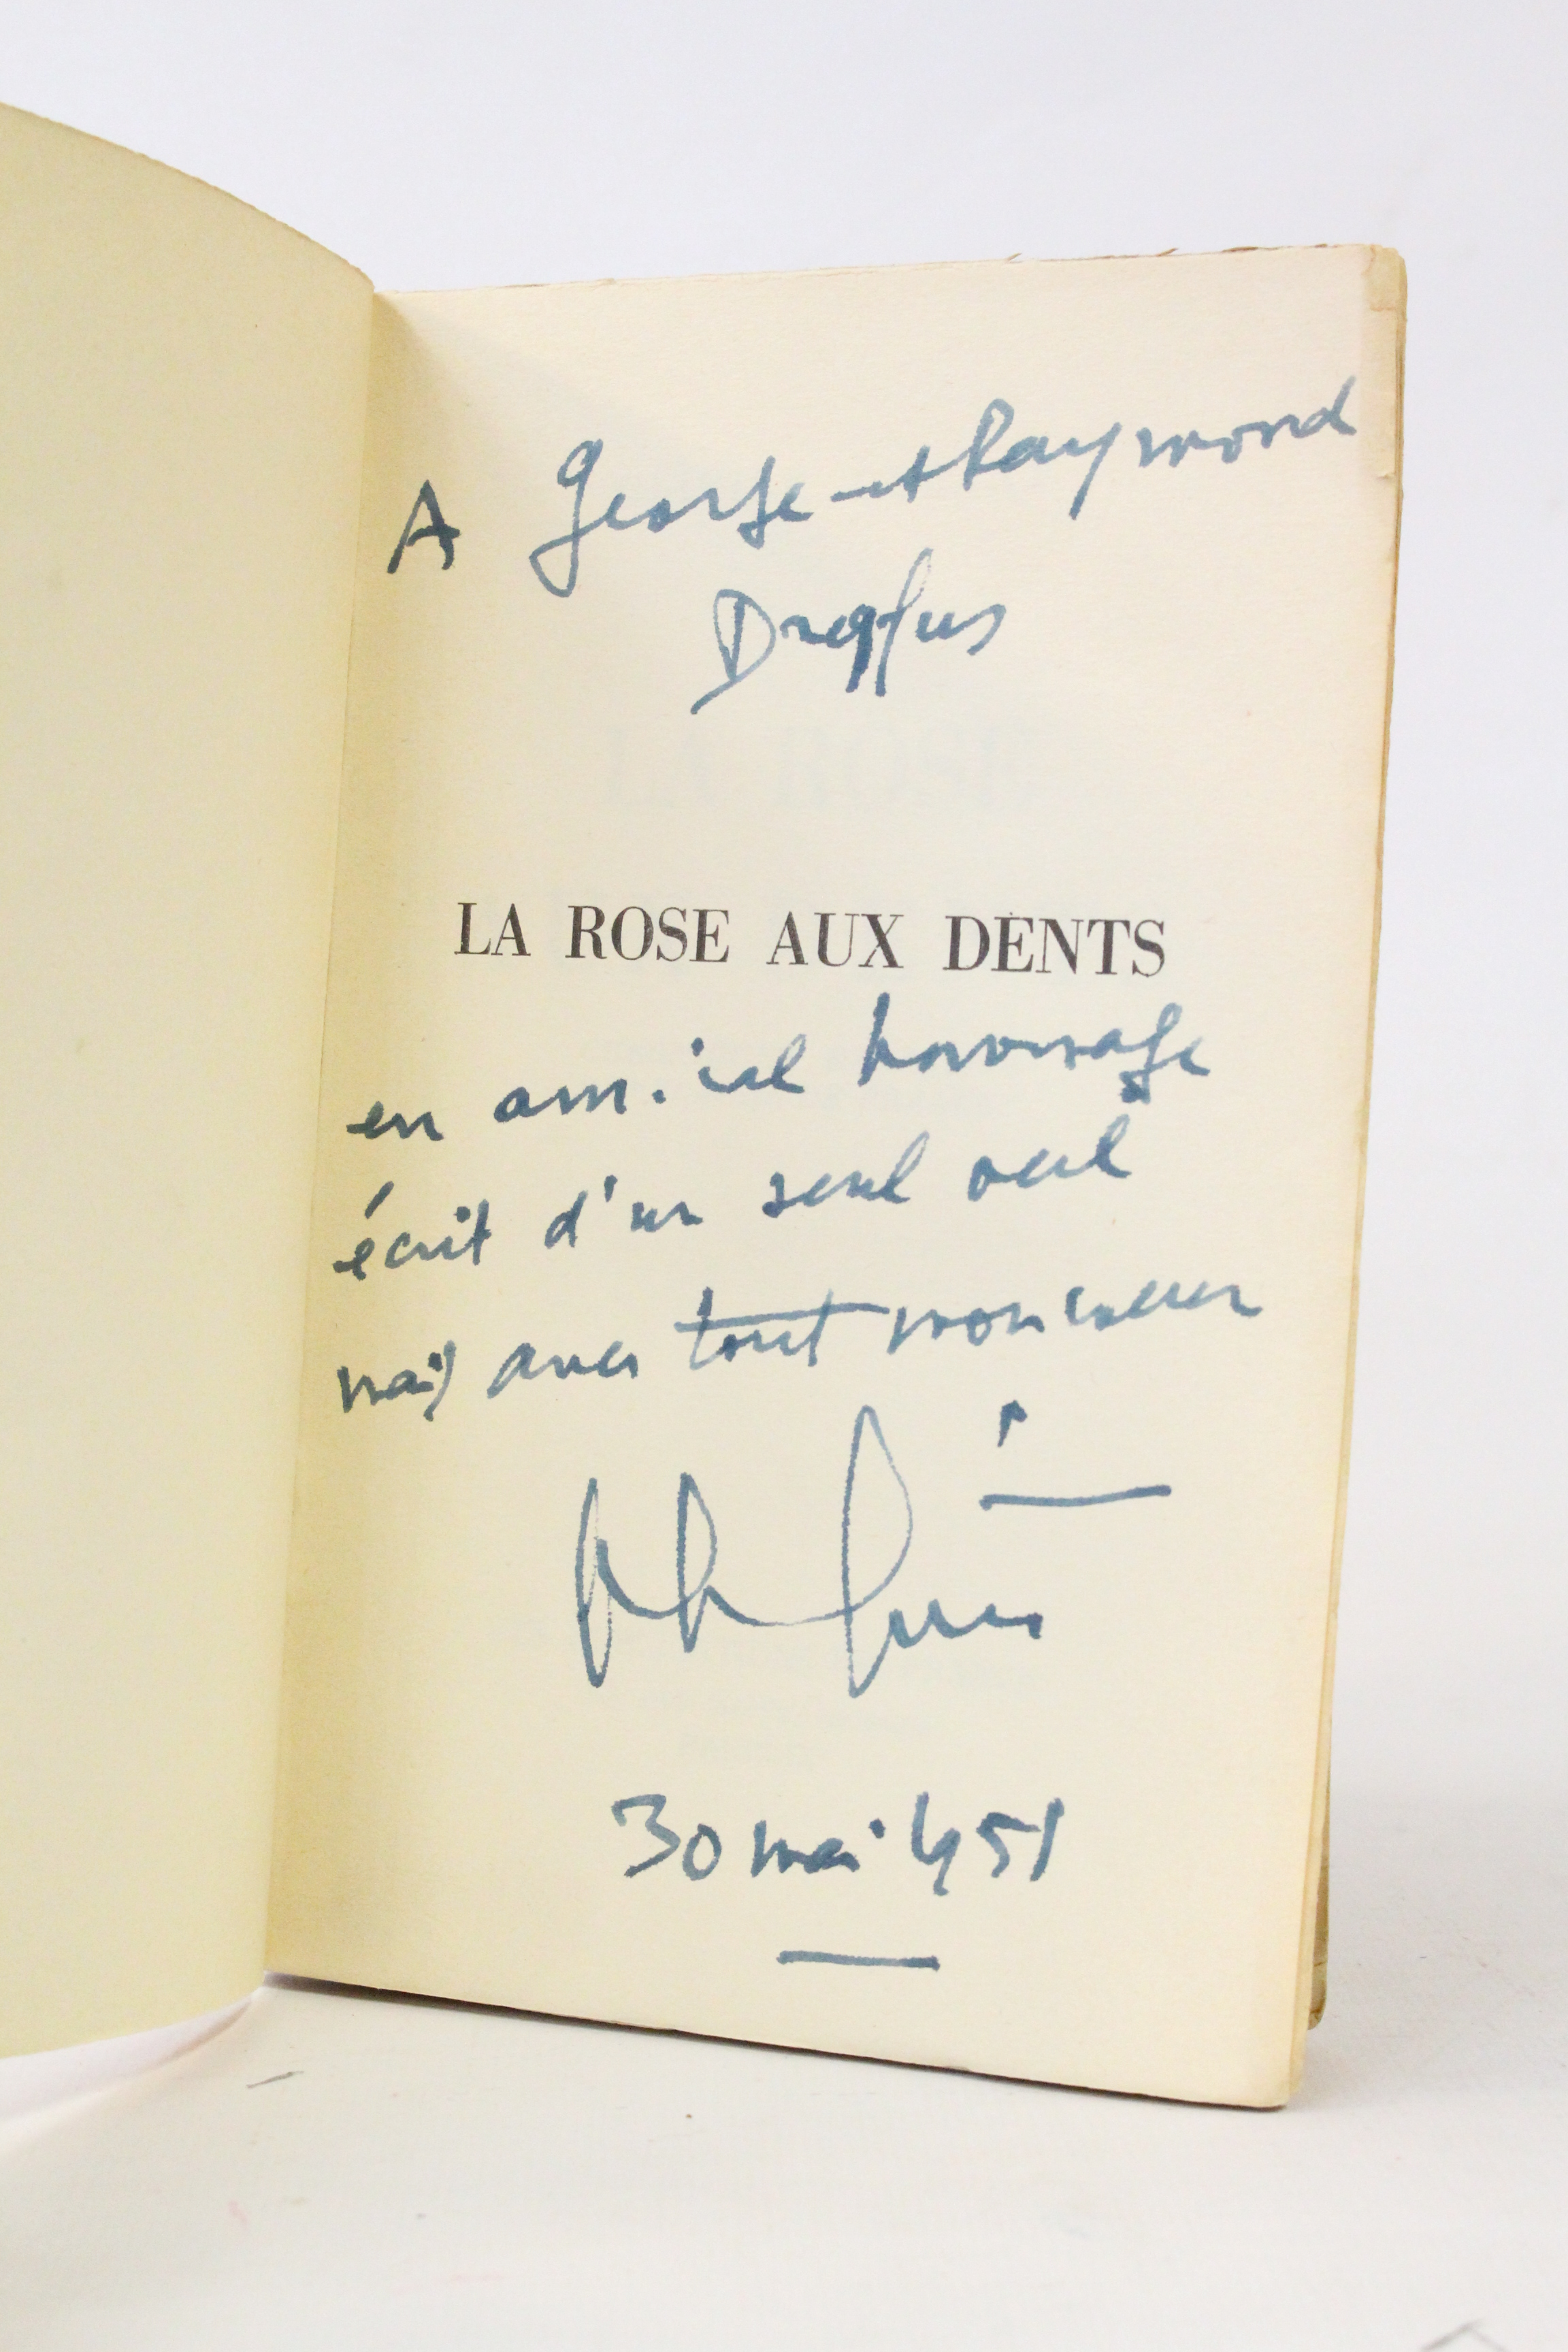 A George et Raymond
Dreyfus
LA ROSE AUX DENTS
en amical hommage
écrit d'un seul œil
mais avec tout mon cœur
30 mai 1951